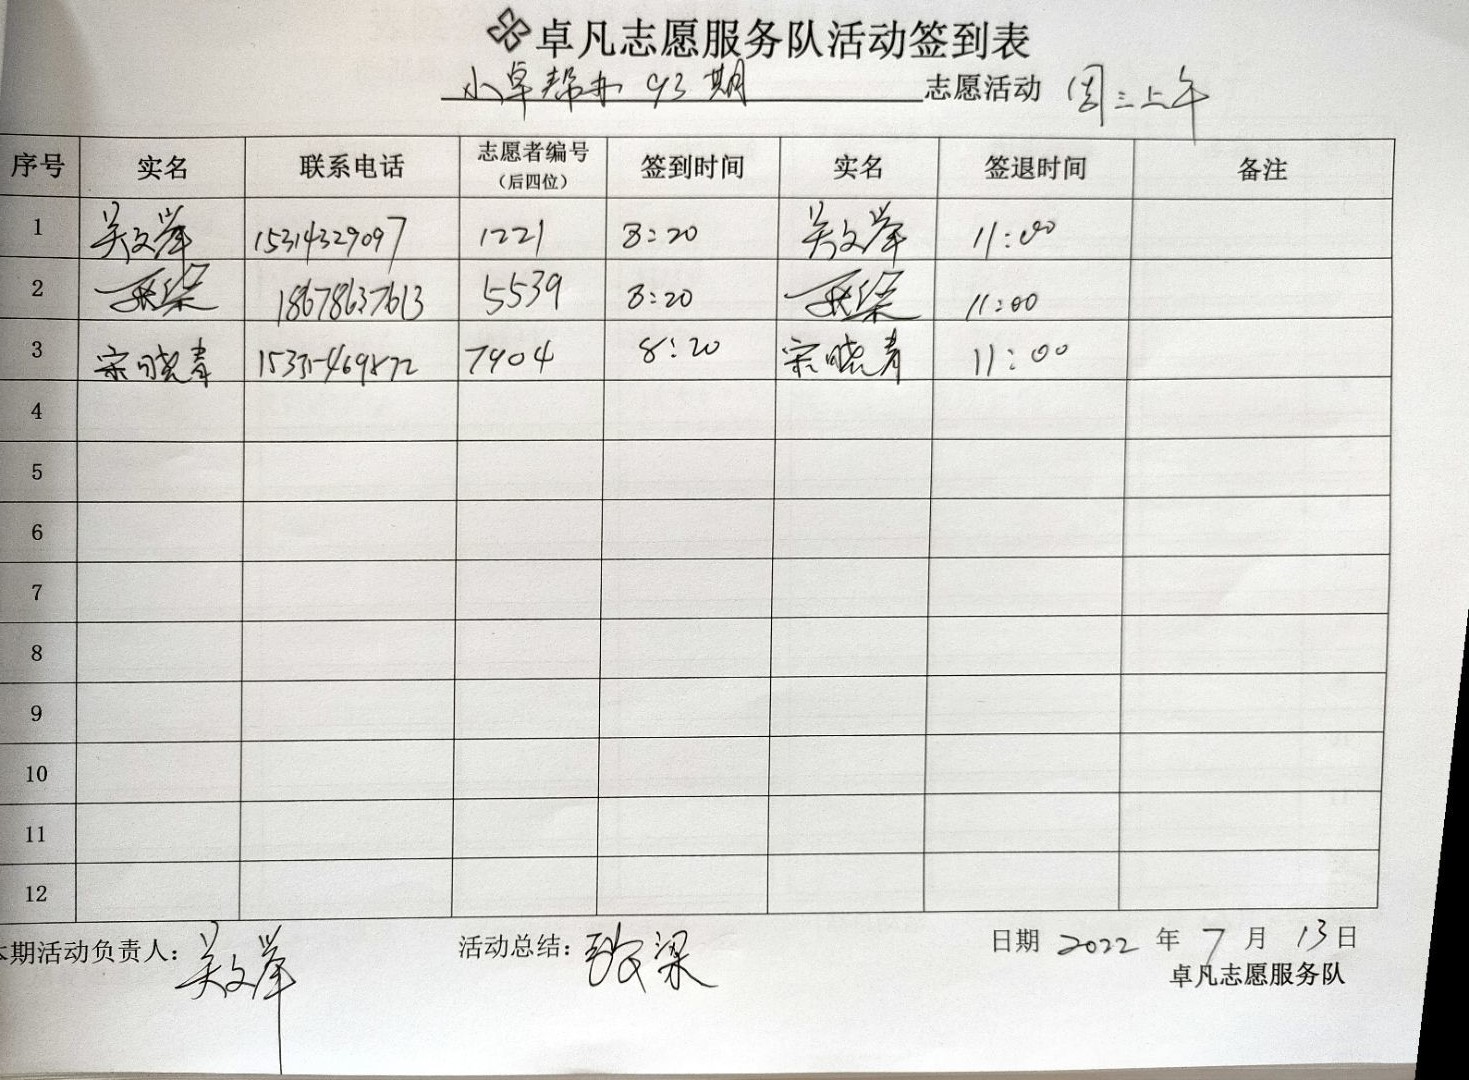 卓凡志愿服务队活动签到表
小卓帮办 93期 志愿活动 周三上午
序号 实名 联系电话 志愿者编号（后四位） 签到时间 实名 签退时间 备注
1 吴文举 15314329097 1221 8:20 吴文举 11:00
2 18678637613 5539 8:20 11:00
3 宋晓青 7904 8:20 宋晓青 11:00
4
5
6
7
8
9
10
11
12
本期活动负责人: 吴文举 活动总结: 梁 日期 2022 年 7 月 13 日
卓凡志愿服务队